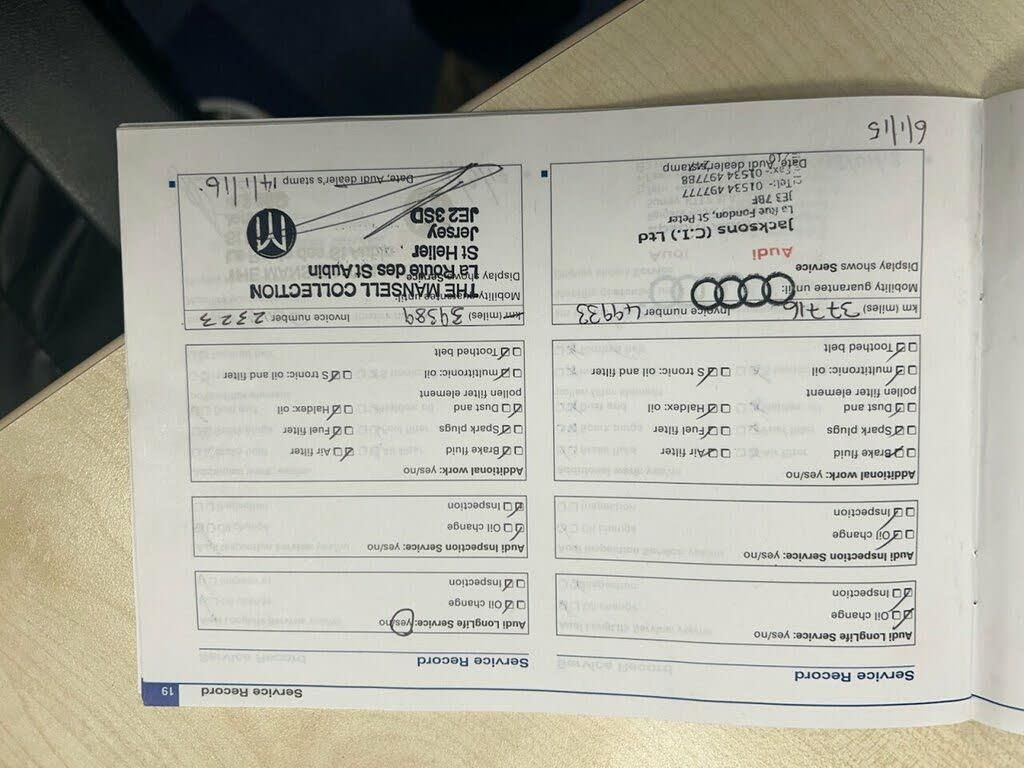 Service Record 19
Service Record
Audi LongLife Service: yes/no
Oil change
Inspection
Audi Inspection Service: yes/no
Oil change
Inspection
Additional work: yes/no
Brake fluid Air filter
Spark plugs Fuel filter
Dust and Haldex: oil
pollen filter element
multitronic: oil S tronic: oil and filter
Toothed belt
km (miles) 37716 Invoice number 49933
Mobility guarantee until:
Display shows Service
Audi
Jacksons (C.I.) Ltd
La Rue Fondon, St Peter
JE3 7BF
Tel:- 01534 497777
Fax:- 01534 497788
Date, Audi dealer's stamp
6/1/15
Service Record
Audi LongLife Service: yes/no
Oil change
Inspection
Audi Inspection Service: yes/no
Oil change
Inspection
Additional work: yes/no
Brake fluid Air filter
Spark plugs Fuel filter
Dust and Haldex: oil
pollen filter element
multitronic: oil S tronic: oil and filter
Toothed belt
km (miles) 39389 Invoice number 2323
Mobility guarantee until:
THE MANSELL COLLECTION
Display shows Service
La Route des St Aubin
St Helier
Jersey
JE2 3SD
Date, Audi dealer's stamp 14/1/16.